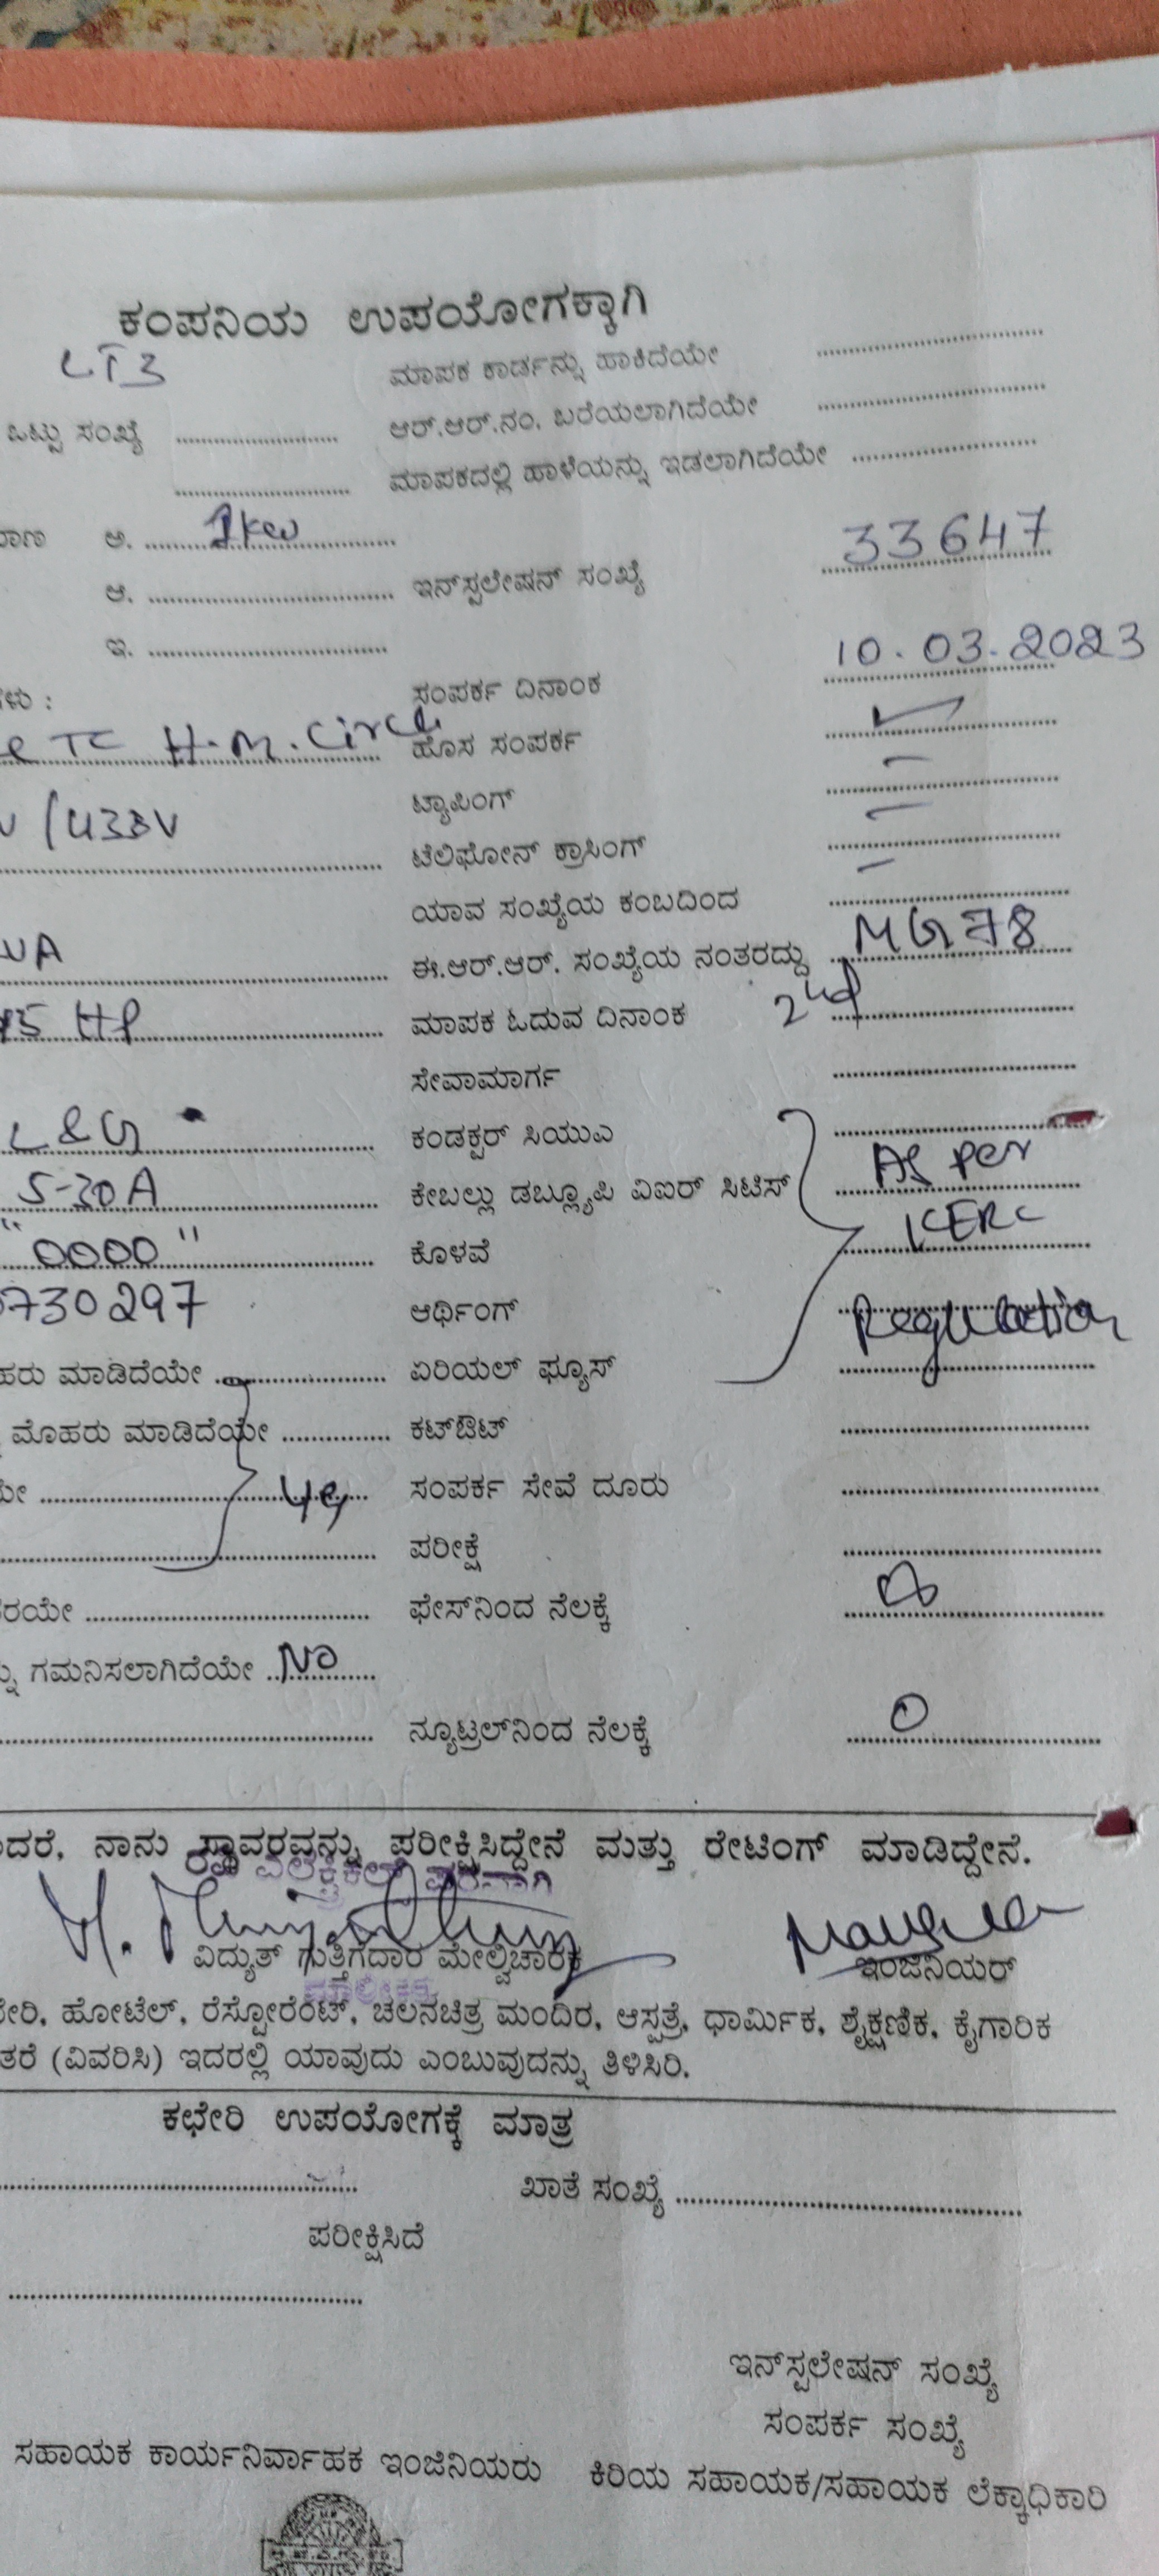 ಕಂಪನಿಯ ಉಪಯೋಗಕ್ಕಾಗಿ
LT3 ಮಾಪಕ ಕಾರ್ಡನ್ನು ಹಾಕಿದೆಯೇ
ಒಟ್ಟು ಸಂಖ್ಯೆ ಆರ್.ಆರ್.ನಂ. ಬರೆಯಲಾಗಿದೆಯೇ
ಮಾಪಕದಲ್ಲಿ ಹಾಳೆಯನ್ನು ಇಡಲಾಗಿದೆಯೇ
ಅ. 1kw
ಆ. ಇನ್‌ಸ್ಟಲೇಷನ್ ಸಂಖ್ಯೆ 33647
ಇ.
ಸಂಪರ್ಕ ದಿನಾಂಕ 10.03.2023
TC H.M.Circle ಹೊಸ ಸಂಪರ್ಕ ✓
/433V ಟ್ಯಾಪಿಂಗ್ –
ಟೆಲಿಫೋನ್ ಕ್ರಾಸಿಂಗ್ –
ಯಾವ ಸಂಖ್ಯೆಯ ಕಂಬದಿಂದ –
ಈ.ಆರ್.ಆರ್. ಸಂಖ್ಯೆಯ ನಂತರದ್ದು MG78
HP ಮಾಪಕ ಓದುವ ದಿನಾಂಕ 2nd
ಸೇವಾಮಾರ್ಗ
L&G ಕಂಡಕ್ಟರ್ ಸಿಯುಎ
5-30A ಕೇಬಲ್ಲು ಡಬ್ಲ್ಯೂಪಿ ವಿಐರ್ ಸಿಟಿಸ್ As per
"0000" ಕೊಳವೆ KERC
730297 ಆರ್ಥಿಂಗ್ Regulation
ಮಾಡಿದೆಯೇ ಏರಿಯಲ್ ಫ್ಯೂಸ್
ಮೊಹರು ಮಾಡಿದೆಯೇ ಕಟ್‌ಔಟ್
ಸಂಪರ್ಕ ಸೇವೆ ದೂರು
ಪರೀಕ್ಷೆ
ಫೇಸ್‌ನಿಂದ ನೆಲಕ್ಕೆ
ಗಮನಿಸಲಾಗಿದೆಯೇ NO
ನ್ಯೂಟ್ರಲ್‌ನಿಂದ ನೆಲಕ್ಕೆ 0
ನಾನು ಸ್ಥಾವರವನ್ನು ಪರೀಕ್ಷಿಸಿದ್ದೇನೆ ಮತ್ತು ರೇಟಿಂಗ್ ಮಾಡಿದ್ದೇನೆ.
ವಿದ್ಯುತ್ ಗುತ್ತಿಗೆದಾರ ಮೇಲ್ವಿಚಾರಕ ಇಂಜಿನಿಯರ್
ಹೋಟೆಲ್, ರೆಸ್ಟೋರೆಂಟ್, ಚಲನಚಿತ್ರ ಮಂದಿರ, ಆಸ್ಪತ್ರೆ, ಧಾರ್ಮಿಕ, ಶೈಕ್ಷಣಿಕ, ಕೈಗಾರಿಕ
(ವಿವರಿಸಿ) ಇದರಲ್ಲಿ ಯಾವುದು ಎಂಬುವುದನ್ನು ತಿಳಿಸಿರಿ.
ಕಛೇರಿ ಉಪಯೋಗಕ್ಕೆ ಮಾತ್ರ
ಖಾತೆ ಸಂಖ್ಯೆ
ಪರೀಕ್ಷಿಸಿದೆ
ಇನ್‌ಸ್ಟಲೇಷನ್ ಸಂಖ್ಯೆ
ಸಂಪರ್ಕ ಸಂಖ್ಯೆ
ಸಹಾಯಕ ಕಾರ್ಯನಿರ್ವಾಹಕ ಇಂಜಿನಿಯರು ಕಿರಿಯ ಸಹಾಯಕ/ಸಹಾಯಕ ಲೆಕ್ಕಾಧಿಕಾರಿ